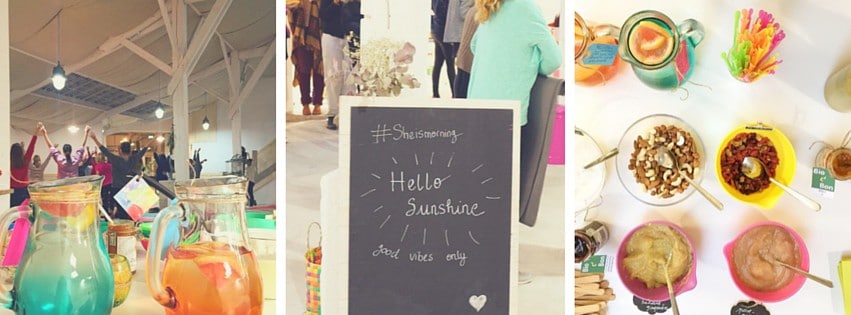 #Sheismorning
Hello
Sunshine
good vibes only
Bio
c'
Bon